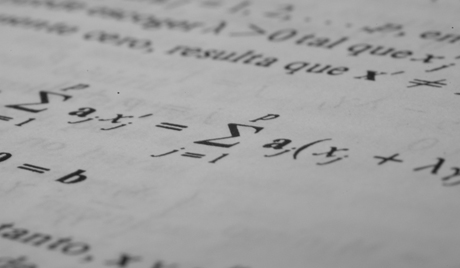 escoger λ > 0 tal que x_j
cero, resulta que x' ≠
∑_{j=1}^{p} a_j x'_j = ∑_{j=1}^{p} a_j (x_j + λy
= b
tanto, x